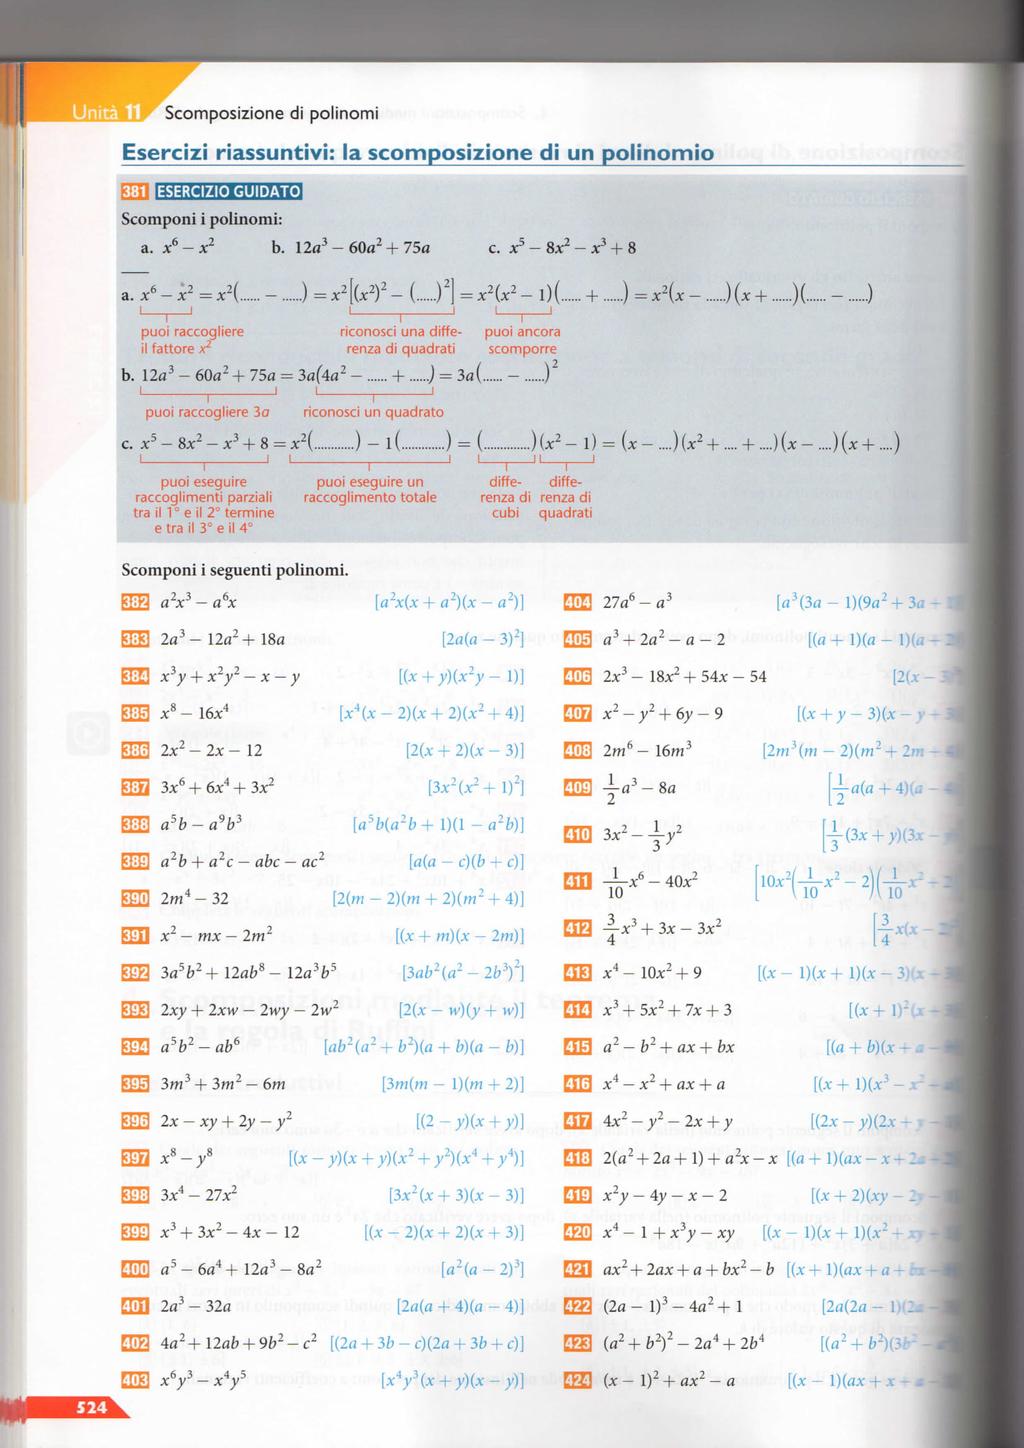 Unità 11 Scomposizione di polinomi
Esercizi riassuntivi: la scomposizione di un polinomio
381 ESERCIZIO GUIDATO
Scomponi i polinomi:
a. x⁶ − x² b. 12a³ − 60a² + 75a c. x⁵ − 8x² − x³ + 8
a. x⁶ − x² = x²(...... − ......) = x²[(x²)² − (......)²] = x²(x² − 1)(...... + ......) = x²(x − ......)(x + ......)(...... − ......)
puoi raccogliere il fattore x²
riconosci una differenza di quadrati
puoi ancora scomporre
b. 12a³ − 60a² + 75a = 3a(4a² − ...... + ......) = 3a(...... − ......)²
puoi raccogliere 3a riconosci un quadrato
c. x⁵ − 8x² − x³ + 8 = x²(............) − 1(............) = (............)(x² − 1) = (x − ....)(x² + .... + ....)(x − ....)(x + ....)
puoi eseguire
raccoglimenti parziali
tra il 1° e il 2° termine
e tra il 3° e il 4°
puoi eseguire un
raccoglimento totale
diffe-
renza di
cubi
diffe-
renza di
quadrati
Scomponi i seguenti polinomi.
382 a²x³ − a⁶x [a²x(x + a²)(x − a²)]
383 2a³ − 12a² + 18a [2a(a − 3)²]
384 x³y + x²y² − x − y [(x + y)(x²y − 1)]
385 x⁸ − 16x⁴ [x⁴(x − 2)(x + 2)(x² + 4)]
386 2x² − 2x − 12 [2(x + 2)(x − 3)]
387 3x⁶ + 6x⁴ + 3x² [3x²(x² + 1)²]
388 a⁵b − a⁹b³ [a⁵b(a²b + 1)(1 − a²b)]
389 a²b + a²c − abc − ac² [a(a − c)(b + c)]
390 2m⁴ − 32 [2(m − 2)(m + 2)(m² + 4)]
391 x² − mx − 2m² [(x + m)(x − 2m)]
392 3a⁵b² + 12ab⁸ − 12a³b⁵ [3ab²(a² − 2b³)²]
393 2xy + 2xw − 2wy − 2w² [2(x − w)(y + w)]
394 a⁵b² − ab⁶ [ab²(a² + b²)(a + b)(a − b)]
395 3m³ + 3m² − 6m [3m(m − 1)(m + 2)]
396 2x − xy + 2y − y² [(2 − y)(x + y)]
397 x⁸ − y⁸ [(x − y)(x + y)(x² + y²)(x⁴ + y⁴)]
398 3x⁴ − 27x² [3x²(x + 3)(x − 3)]
399 x³ + 3x² − 4x − 12 [(x − 2)(x + 2)(x + 3)]
400 a⁵ − 6a⁴ + 12a³ − 8a² [a²(a − 2)³]
401 2a³ − 32a [2a(a + 4)(a − 4)]
402 4a² + 12ab + 9b² − c² [(2a + 3b − c)(2a + 3b + c)]
403 x⁶y³ − x⁴y⁵ [x⁴y³(x + y)(x − y)]
404 27a⁶ − a³ [a³(3a − 1)(9a² + 3a +
405 a³ + 2a² − a − 2 [(a + 1)(a − 1)(a
406 2x³ − 18x² + 54x − 54 [2(x −
407 x² − y² + 6y − 9 [(x + y − 3)(x − y +
408 2m⁶ − 16m³ [2m³(m − 2)(m² + 2m +
409 1/2 a³ − 8a [1/2 a(a + 4)(a
410 3x² − 1/3 y² [1/3 (3x + y)(3x
411 1/10 x⁶ − 40x² [10x²(1/10 x² − 2)(1/10 x²
412 3/4 x³ + 3x − 3x² [3/4 x(x −
413 x⁴ − 10x² + 9 [(x − 1)(x + 1)(x − 3)(x
414 x³ + 5x² + 7x + 3 [(x + 1)²(x
415 a² − b² + ax + bx [(a + b)(x + a
416 x⁴ − x² + ax + a [(x + 1)(x³ − x²
417 4x² − y² − 2x + y [(2x − y)(2x + y
418 2(a² + 2a + 1) + a²x − x [(a + 1)(ax − x + 2a
419 x²y − 4y − x − 2 [(x + 2)(xy − 2y
420 x⁴ − 1 + x³y − xy [(x − 1)(x + 1)(x² + xy
421 ax² + 2ax + a + bx² − b [(x + 1)(ax + a + bx
422 (2a − 1)³ − 4a² + 1 [2a(2a − 1)(2a
423 (a² + b²)² − 2a⁴ + 2b⁴ [(a² + b²)(3b²
424 (x − 1)² + ax² − a [(x − 1)(ax + x + a
524